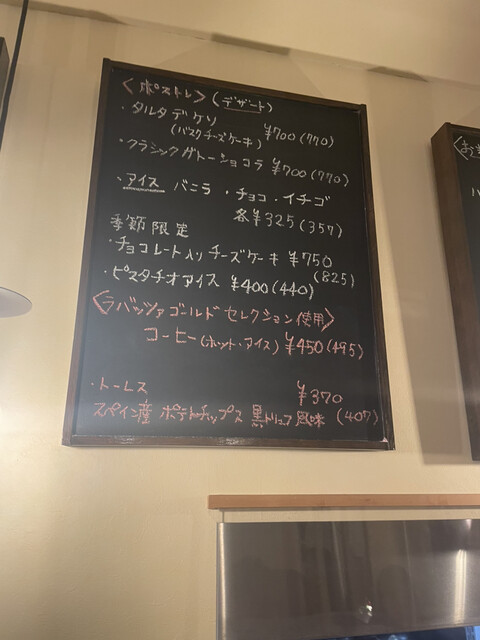 〈ポストレ〉(デザート)
・タルタ デ ケソ ¥700(770)
(バスクチーズケーキ)
・クラシック ガトーショコラ ¥700(770)
・アイス バニラ・チョコ・イチゴ
各¥325(357)
季節限定
・チョコレート入りチーズケーキ ¥750
(825)
・ピスタチオアイス ¥400(440)
〈ラバッツァ ゴールド セレクション使用〉
コーヒー(ホット・アイス) ¥450(495)
・トーレス ¥370
スペイン産 ポテトチップス 黒トリュフ風味 (407)